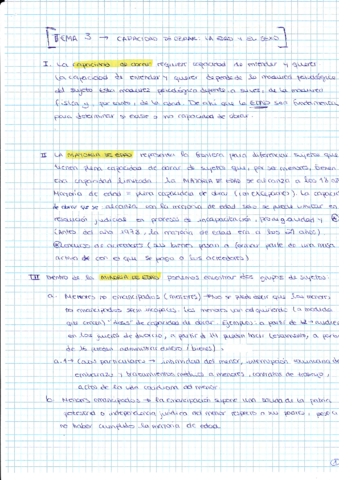 TEMA 3 → CAPACIDAD DE OBRAR: LA EDAD Y EL SEXO
I. La capacidad de obrar requiere capacidad de entender y querer
la capacidad de entender y querer depende de la madurez psicológica
del sujeto esta madurez psicológica depende a su vez, de la madurez
física y, por tanto, de la edad. De ahí que la EDAD sea fundamental
para determinar si existe y no capacidad de obrar
II LA MAYORÍA DE EDAD representa la frontera para diferenciar sujetos que
tienen plena capacidad de obrar de sujetos que, por ser menores, tienen
esa capacidad limitada. La MAYORÍA DE EDAD se alcanza a los 18
Mayoría de edad = plena capacidad de obrar La capacidad
de obrar que se alcanza con la mayoría de edad solo se puede limitar en
resolución judicial en proceso de incapacitación, prodigalidad y
(Antes del año 1978, la mayoría de edad era a los 21 años)
de acreedores (sus bienes pasan a formar parte de una masa
activa de con lo que se paga a los acreedores)
III Dentro de la MINORÍA DE EDAD podemos encontrar dos grupos de sujetos:
a. Menores no emancipados (menores) → No se puede decir que los menores
no emancipados sean incapaces. Los menores van adquiriendo (a medida
que crecen) "áreas" de capacidad de obrar. Ejemplos: a partir de 12 →
en los juicios de divorcio, a partir de 14 pueden hacer testamento, a partir
de 16 pueden administrar
a.1 → Casos particulares → intimidad del menor, interrupción voluntaria de
embarazo y tratamientos médicos a menores, contrato de trabajo,
acto de la vida cotidiana del menor
b. Menores emancipados → la emancipación supone una salida de la patria
potestad o independencia jurídica del menor respecto a sus padres, pese a
no haber cumplido la mayoría de edad.